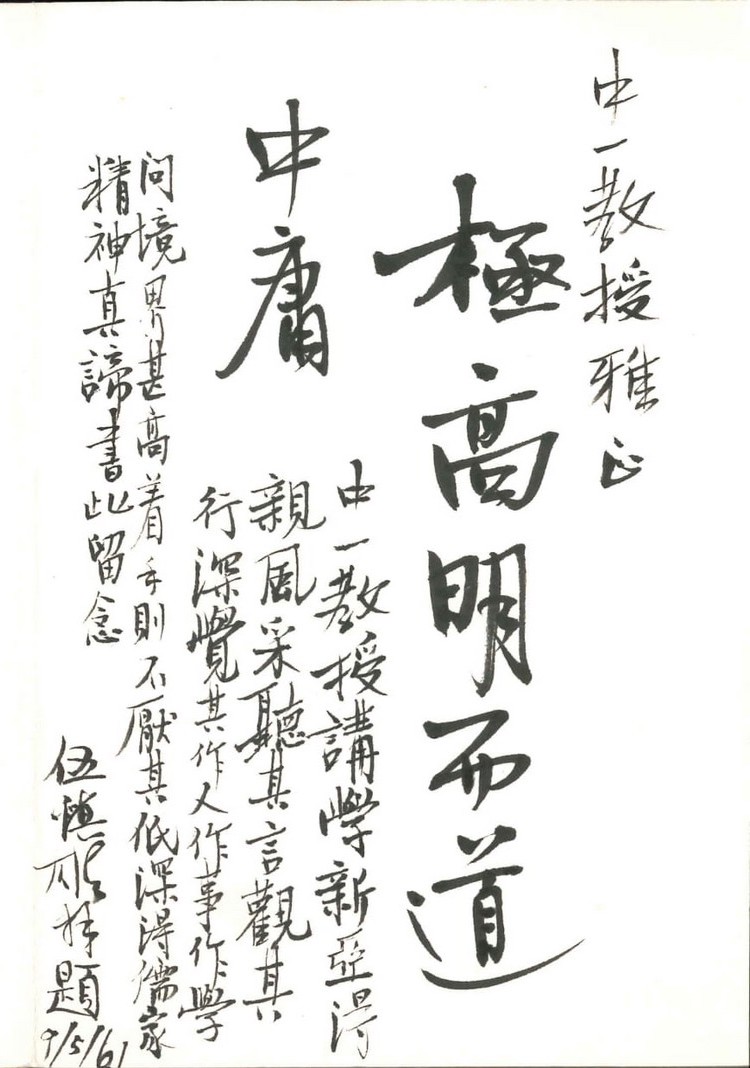 中一教授雅正
極高明而道
中庸
中一教授講學新亞得
親風采聽其言觀其
行深覺其作人作事作學
问境界甚高着手則不厭其低深得儒家
精神真諦書此留念
伍慎
題
9/5/61